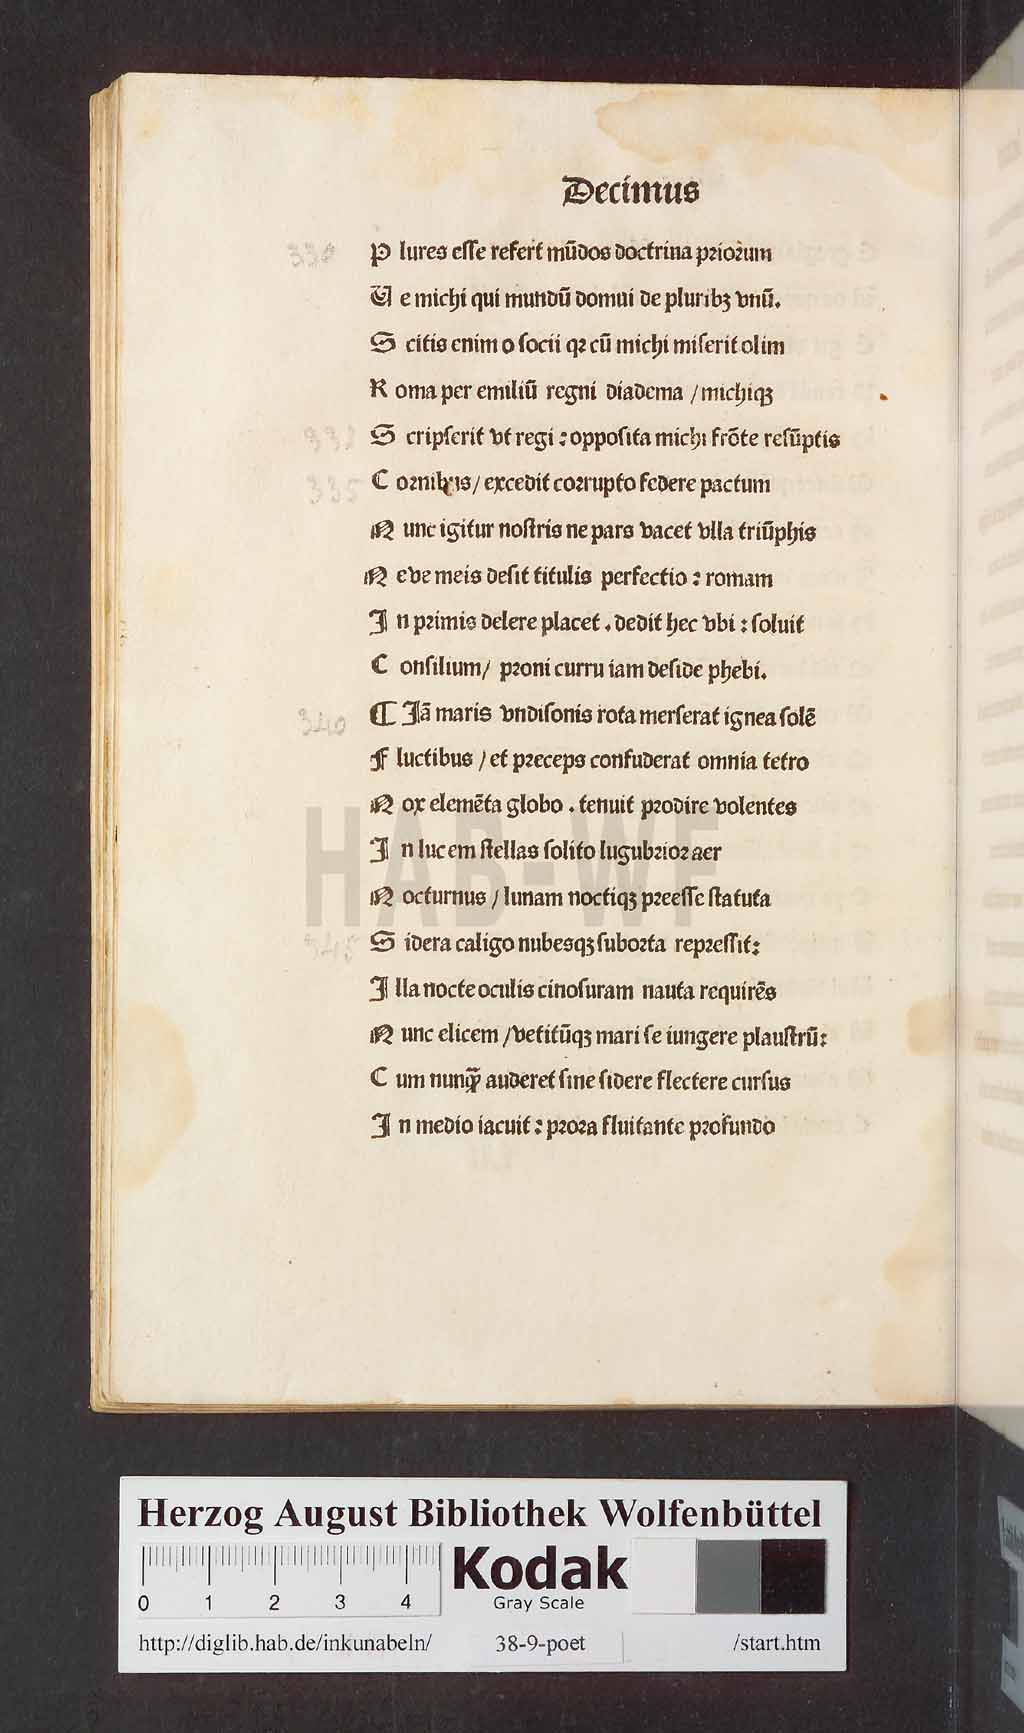 Decimus
330 P lures esse refert mūdos doctrina priorum
U e michi qui mundū domui de pluribꝫ vnū.
S citis enim o socii qꝛ cū michi miserit olim
R oma per emiliū regni diadema / michiqꝫ
S cripserit vt regi : opposita michi frōte resūptis
335 C ornibus / excedit corrupto federe pactum
N unc igitur nostris ne pars vacet vlla triūphis
N eve meis desit titulis perfectio : romam
I n primis delere placet . dedit hec vbi : soluit
C onsilium / proni curru iam deside phebi.
340 ¶ Iā maris vndisonis rota merserat ignea solē
F luctibus / et preceps confuderat omnia tetro
N ox elemēta globo . tenuit prodire volentes
I n lucem stellas solito lugubrior aer
N octurnus / lunam noctiqꝫ preesse statuta
345 S idera caligo nubesqꝫ suborta repressit:
I lla nocte oculis cinosuram nauta requirēs
N unc elicem / vetitūqꝫ mari se iungere plaustrū:
C um nunqꝫ̄ auderet sine sidere flectere cursus
I n medio iacuit : prora fluitante profundo
HAB-WF
Herzog August Bibliothek Wolfenbüttel
0 1 2 3 4
Kodak
Gray Scale
http://diglib.hab.de/inkunabeln/ 38-9-poet /start.htm